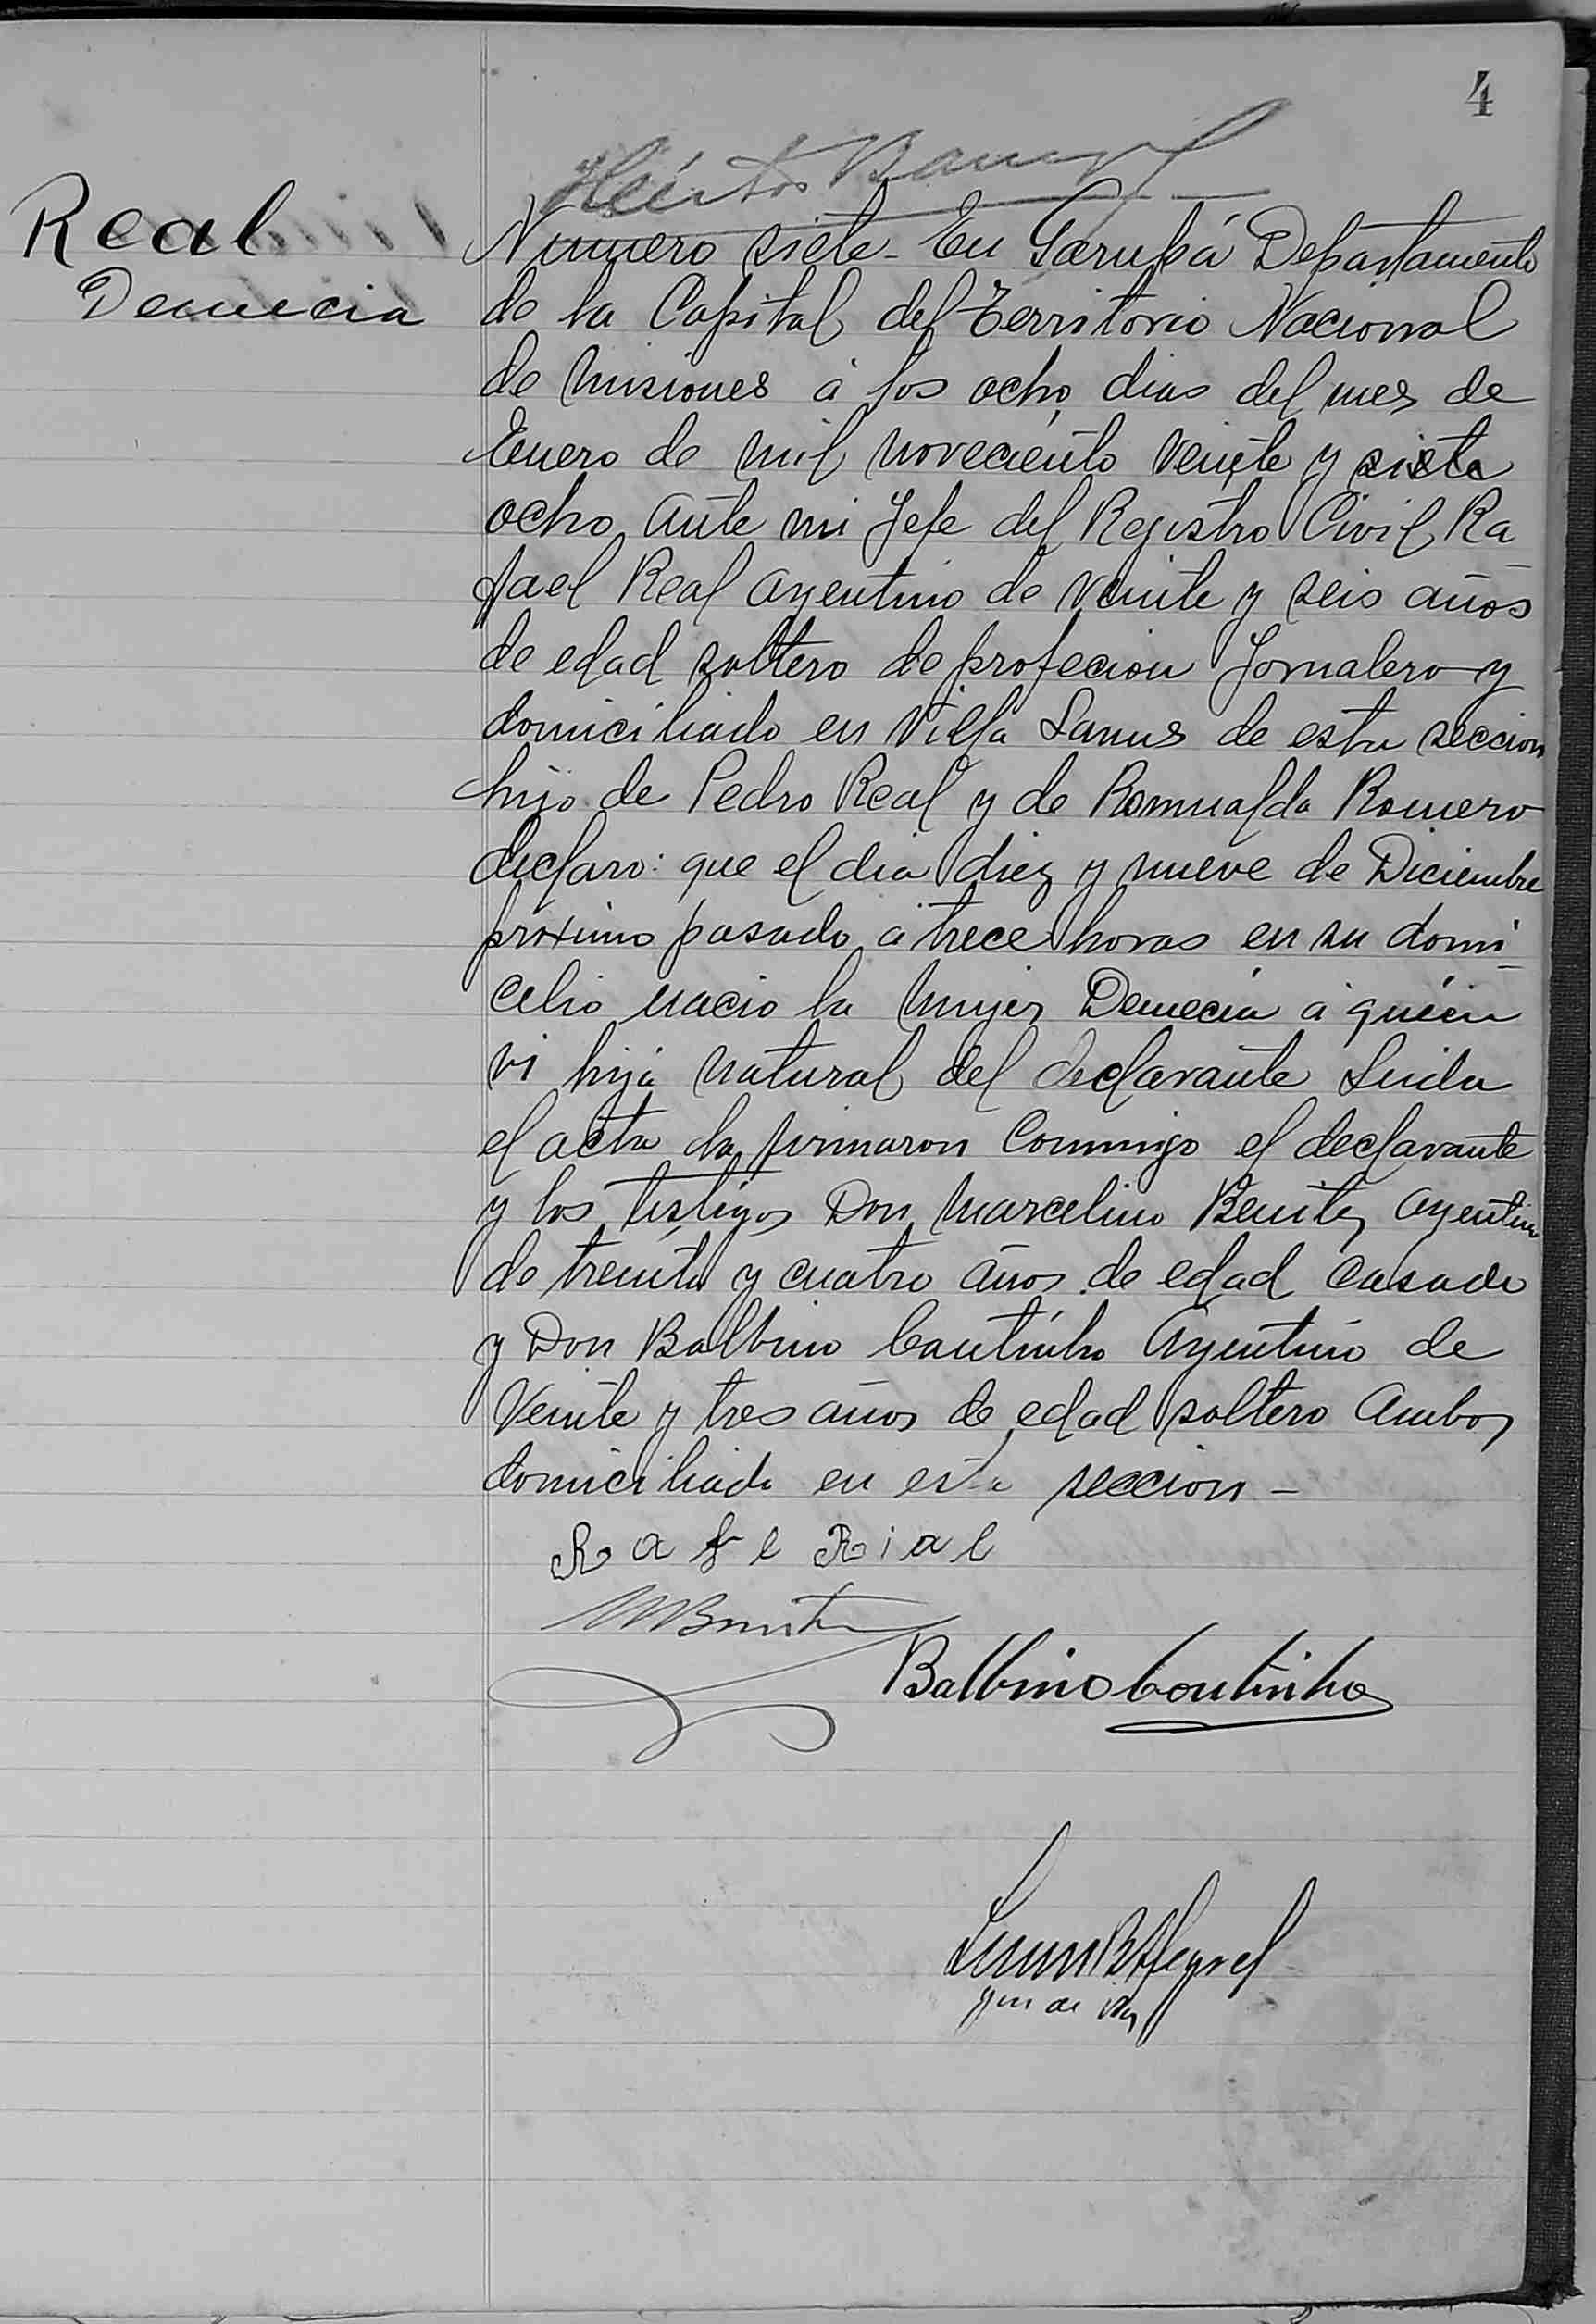 4
Real
Demecia
Numero siete - En Garupá Departamento
de la Capital del Territorio Nacional
de Misiones á los ocho dias del mes de
Enero de mil noveciento veinte y siete
ocho ante mi Jefe del Registro Civil Ra
fael Real argentino de veinte y seis años
de edad soltero de profecion Jornalero y
domiciliado en Villa Lanus de esta seccion
hijo de Pedro Real y de Romualda Romero
declaro: que el dia diez y nueve de Diciembre
próximo pasado á trece horas en su domi
celio nacio la mujer Demecia á quien
vi hija natural del declarante Leida
el acta la firmaron Conmigo el declarante
y los testigos Don Marcelino Benitez argentino
de treinta y cuatro años de edad Casado
y Don Balbino Coutinho argentino de
Veinte y tres años de edad soltero Ambos
domiciliado en esta seccion -
Rafe Rial
MBenitez
Balbino Coutinho